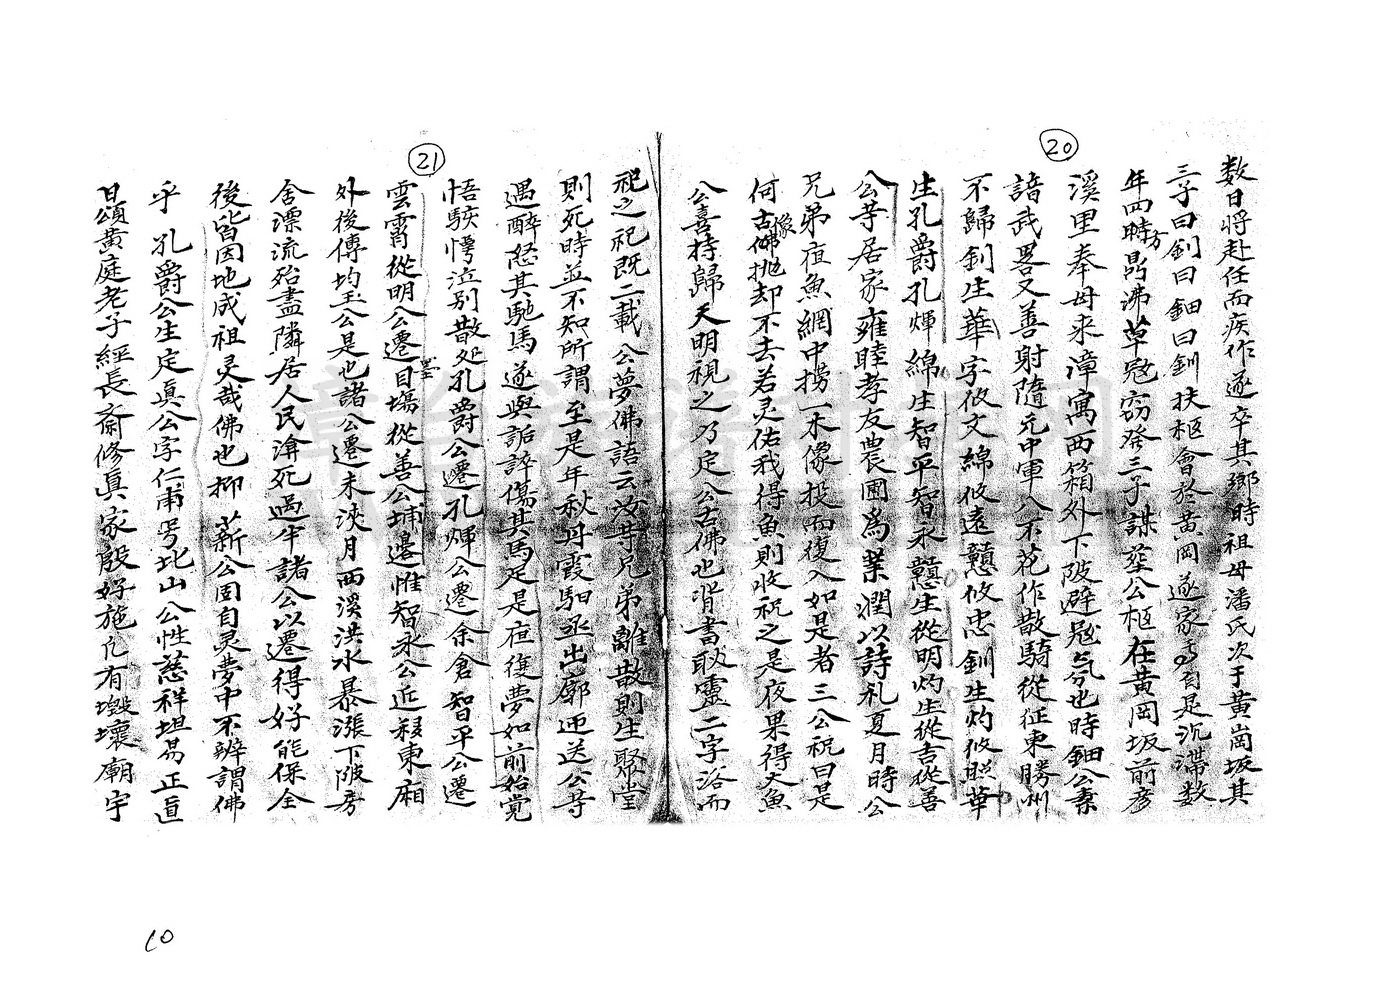 20
数日將赴任而疾作遂卒其鄉時祖母潘氏次于黃崗坂其
三子曰釗曰鈿曰釧扶柩會於黃岡遂家焉自是沉滯数
年四時方鼎沸草冦窃發三子謀塟公柩在黃岡坂前彥
溪里奉母来漳寓西箱外下陂避冦氛也時鈿公素
諳武畧又善射隨元中軍八不花作散騎從征東勝州
不歸釗生華字攸文綿攸遠戇攸忠釧生灼攸照華
生孔爵孔煇綿生智平智永戇生從明灼生從吉從善
公等居家雍睦孝友農圃為業潤以詩礼夏月時公
兄弟夜魚網中撈一木像投而復入如是者三公祝曰是
何古佛像抛却不去若灵佑我得魚則收祝之是夜果得大魚
公喜持歸天明視之乃定公古佛也背書耿靈二字浴而
21
祀之祀既二載公夢佛語云汝等兄弟離散則生聚堂
則死時並不知所謂至是年秋丹霞馹丞出廓迎送公等
遇醉怒其馳馬遂與詬誶傷其馬足是夜復夢如前始覚
悟駭愕泣别散処孔爵公遷墨孔煇公遷余倉智平公遷
雲霄從明公遷目塲從善公埔邉惟智永公近移東廂
外後傳均玉公是也諸公遷未浹月西溪洪水暴漲下陂房
舍漂流殆盡隣居人民渰死過半諸公以遷得好能保全
後皆因地成祖灵哉佛也抑 薪公固自灵夢中不辨謂佛
乎 孔爵公生定真公字仁甫号北山公性慈祥坦易正直
日頌黃庭老子經長齋修真家殷好施凡有㙺壞廟宇
10